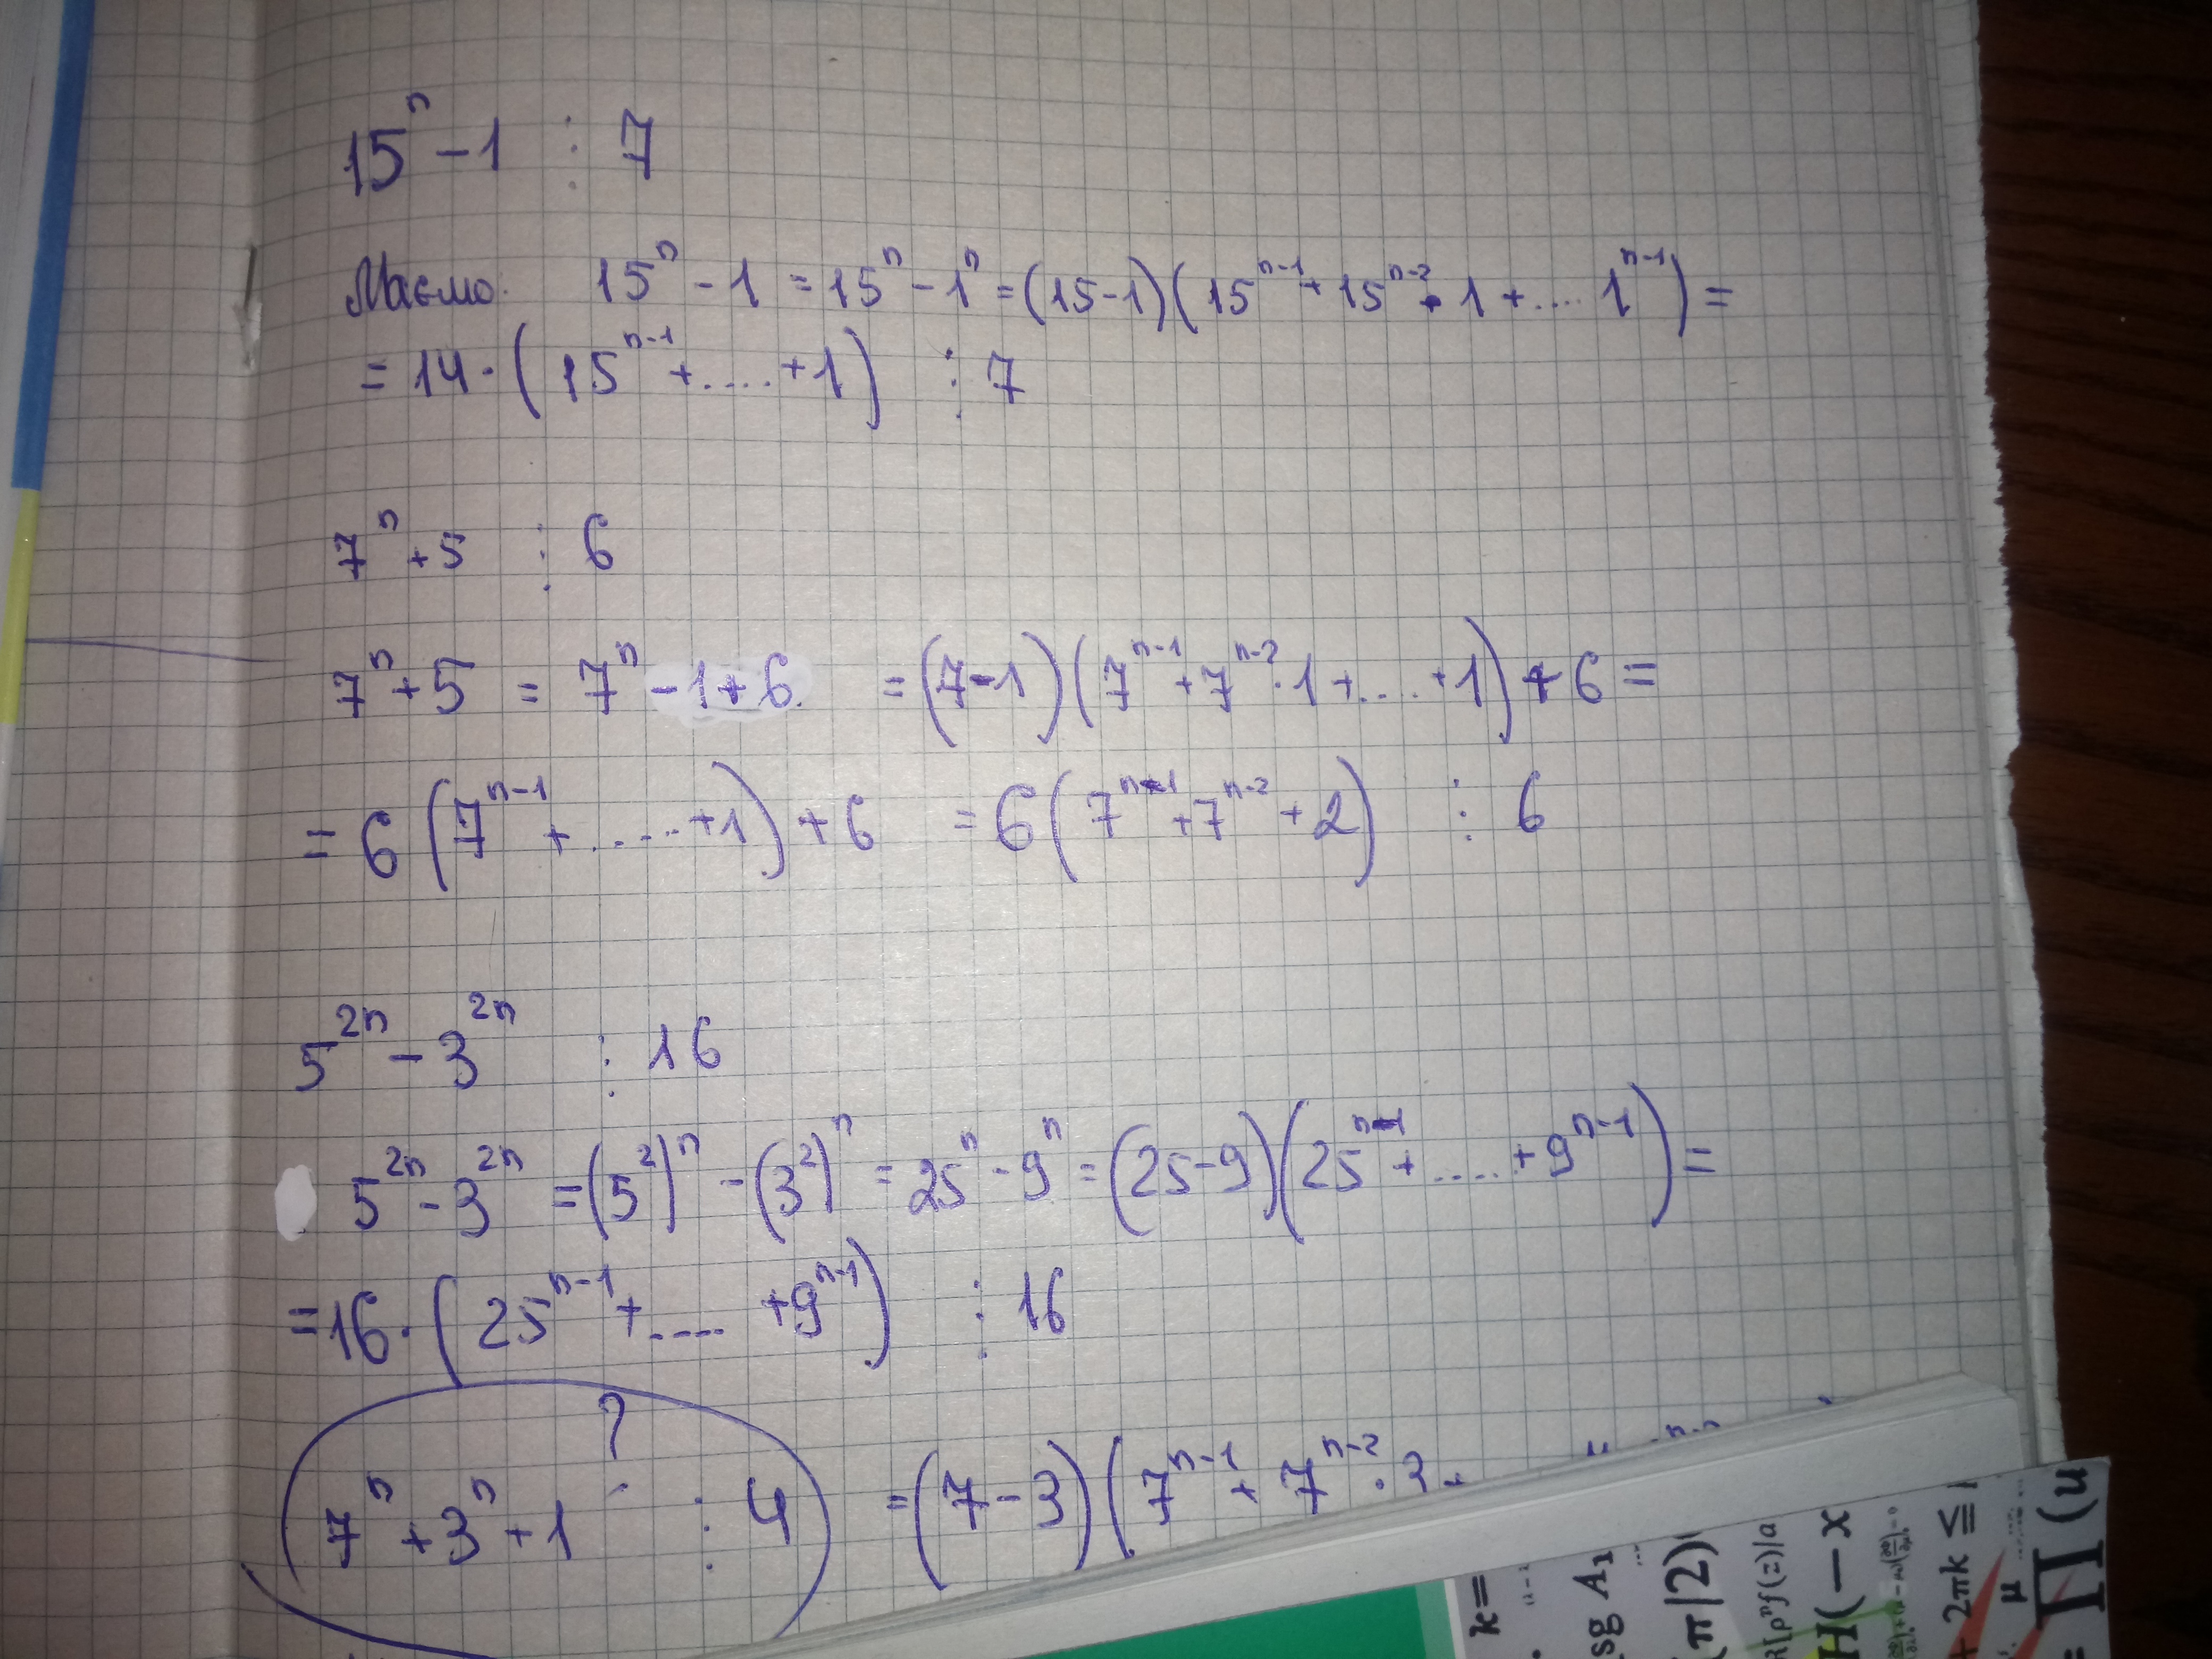 15ⁿ - 1 ⋮ 7
Маємо. 15ⁿ - 1 = 15ⁿ - 1ⁿ = (15-1)(15ⁿ⁻¹ + 15ⁿ⁻² · 1 + .... 1ⁿ⁻¹) =
= 14 · (15ⁿ⁻¹ + .... + 1) ⋮ 7
7ⁿ + 5 ⋮ 6
7ⁿ + 5 = 7ⁿ - 1 + 6 = (7-1)(7ⁿ⁻¹ + 7ⁿ⁻² · 1 + .... + 1) + 6 =
= 6(7ⁿ⁻¹ + ..... + 1) + 6 = 6(7ⁿ⁻¹ + 7ⁿ⁻² + 2) ⋮ 6
5²ⁿ - 3²ⁿ ⋮ 16
5²ⁿ - 3²ⁿ = (5²)ⁿ - (3²)ⁿ = 25ⁿ - 9ⁿ = (25-9)(25ⁿ⁻¹ + ..... + 9ⁿ⁻¹) =
= 16 · (25ⁿ⁻¹ + ..... + 9ⁿ⁻¹) ⋮ 16
?
7ⁿ + 3ⁿ + 1 ⋮ 4 = (7-3)(7ⁿ⁻¹ + 7ⁿ⁻² · 3
k=
sg A₁
(π/2)
H(-x
2πk ≤
μ
= ∏ (u